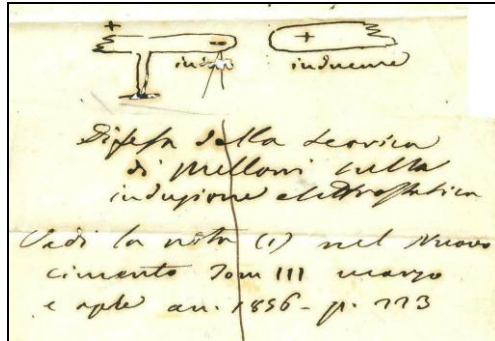 + - +
indotto inducente
Difesa della teorica
di Melloni sulla
induzione elettrostatica
Vedi la nota (1) nel Nuovo
cimento Tom III marzo
e aple an. 1856 - p.